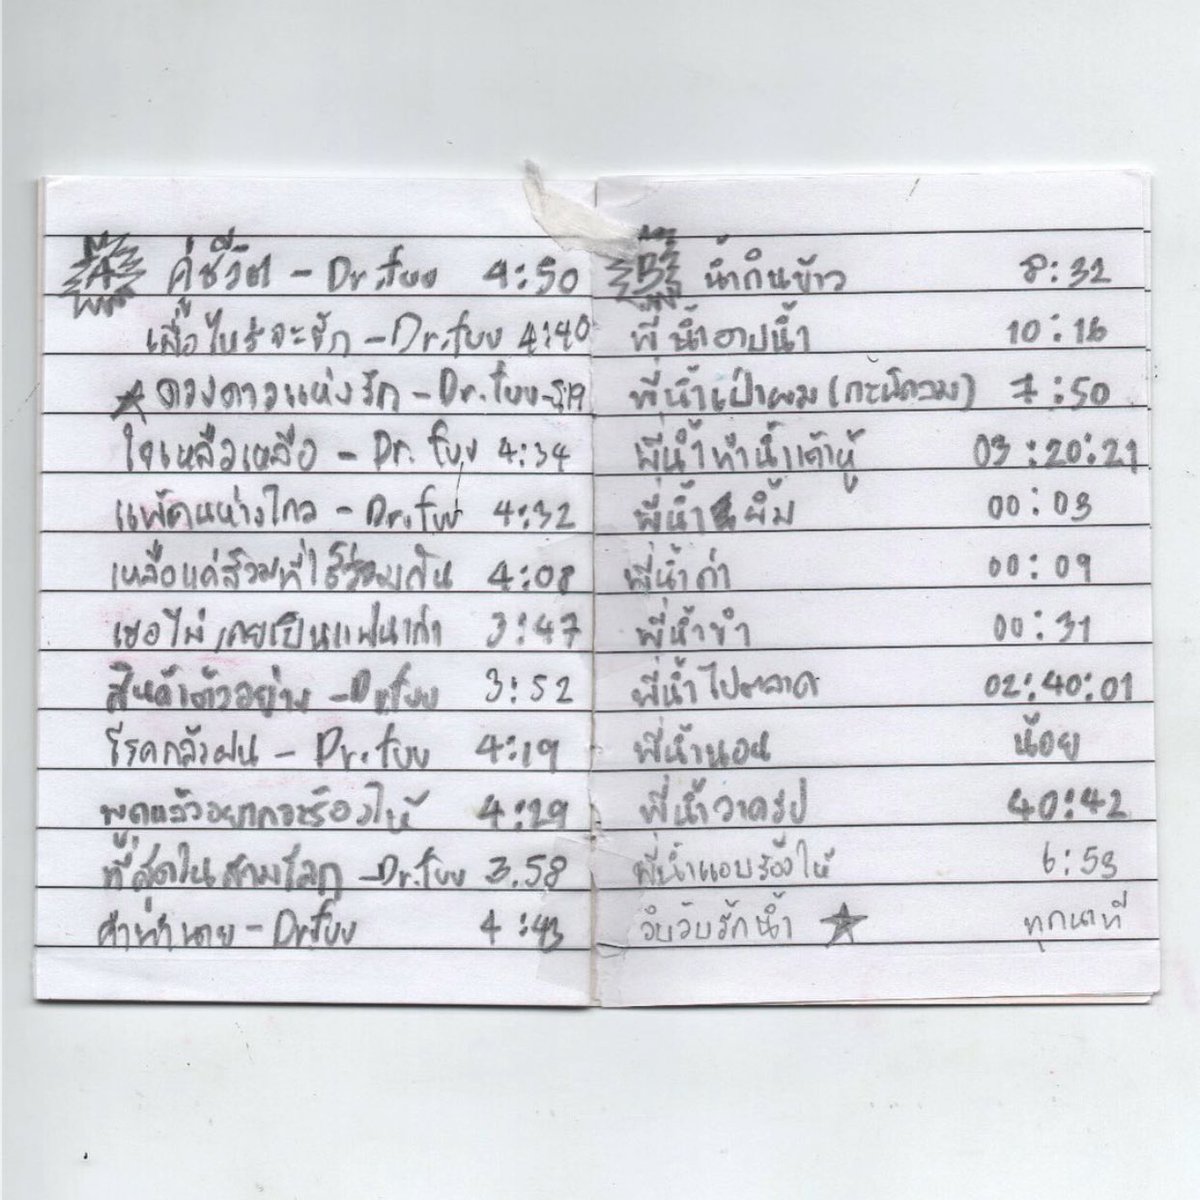 A คู่ชีวิต - Dr.fuu 4:50
เมื่อไหร่จะรัก - Dr.fuu 4:40
ดวงดาวแห่งรัก - Dr.fuu - 5:19
ใจเหลือเหลือ - Dr.fuu 4:34
แพ้คนห่างไกล - Dr.fuu 4:32
เหลือแค่สิ่งที่ 4:08
เธอไม่เคยเป็นแฟนเก่า 3:47
สินค้าตัวอย่าง - Dr.fuu 3:52
โรคกลัวฝน - Dr.fuu 4:19
พูดแล้วอยากจะร้องไห้ 4:29
ที่สุดในสามโลก - Dr.fuu 3.58
คำทำนาย - Dr.fuu 4:43
B น้ำกินข้าว 8:32
พี่น้ำอาบน้ำ 10:16
พี่น้ำเป่าผม 7:50
พี่น้ำทำน้ำเต้าหู้ 03:20:21
พี่น้ำยิ้ม 00:03
พี่น้ำด่า 00:09
พี่น้ำขำ 00:31
พี่น้ำไปตลาด 02:40:01
พี่น้ำนอน น้อย
พี่น้ำวาดรูป 40:42
พี่น้ำแอบร้องไห้ 6:53
วิบวับรักน้ำ ทุกนาที